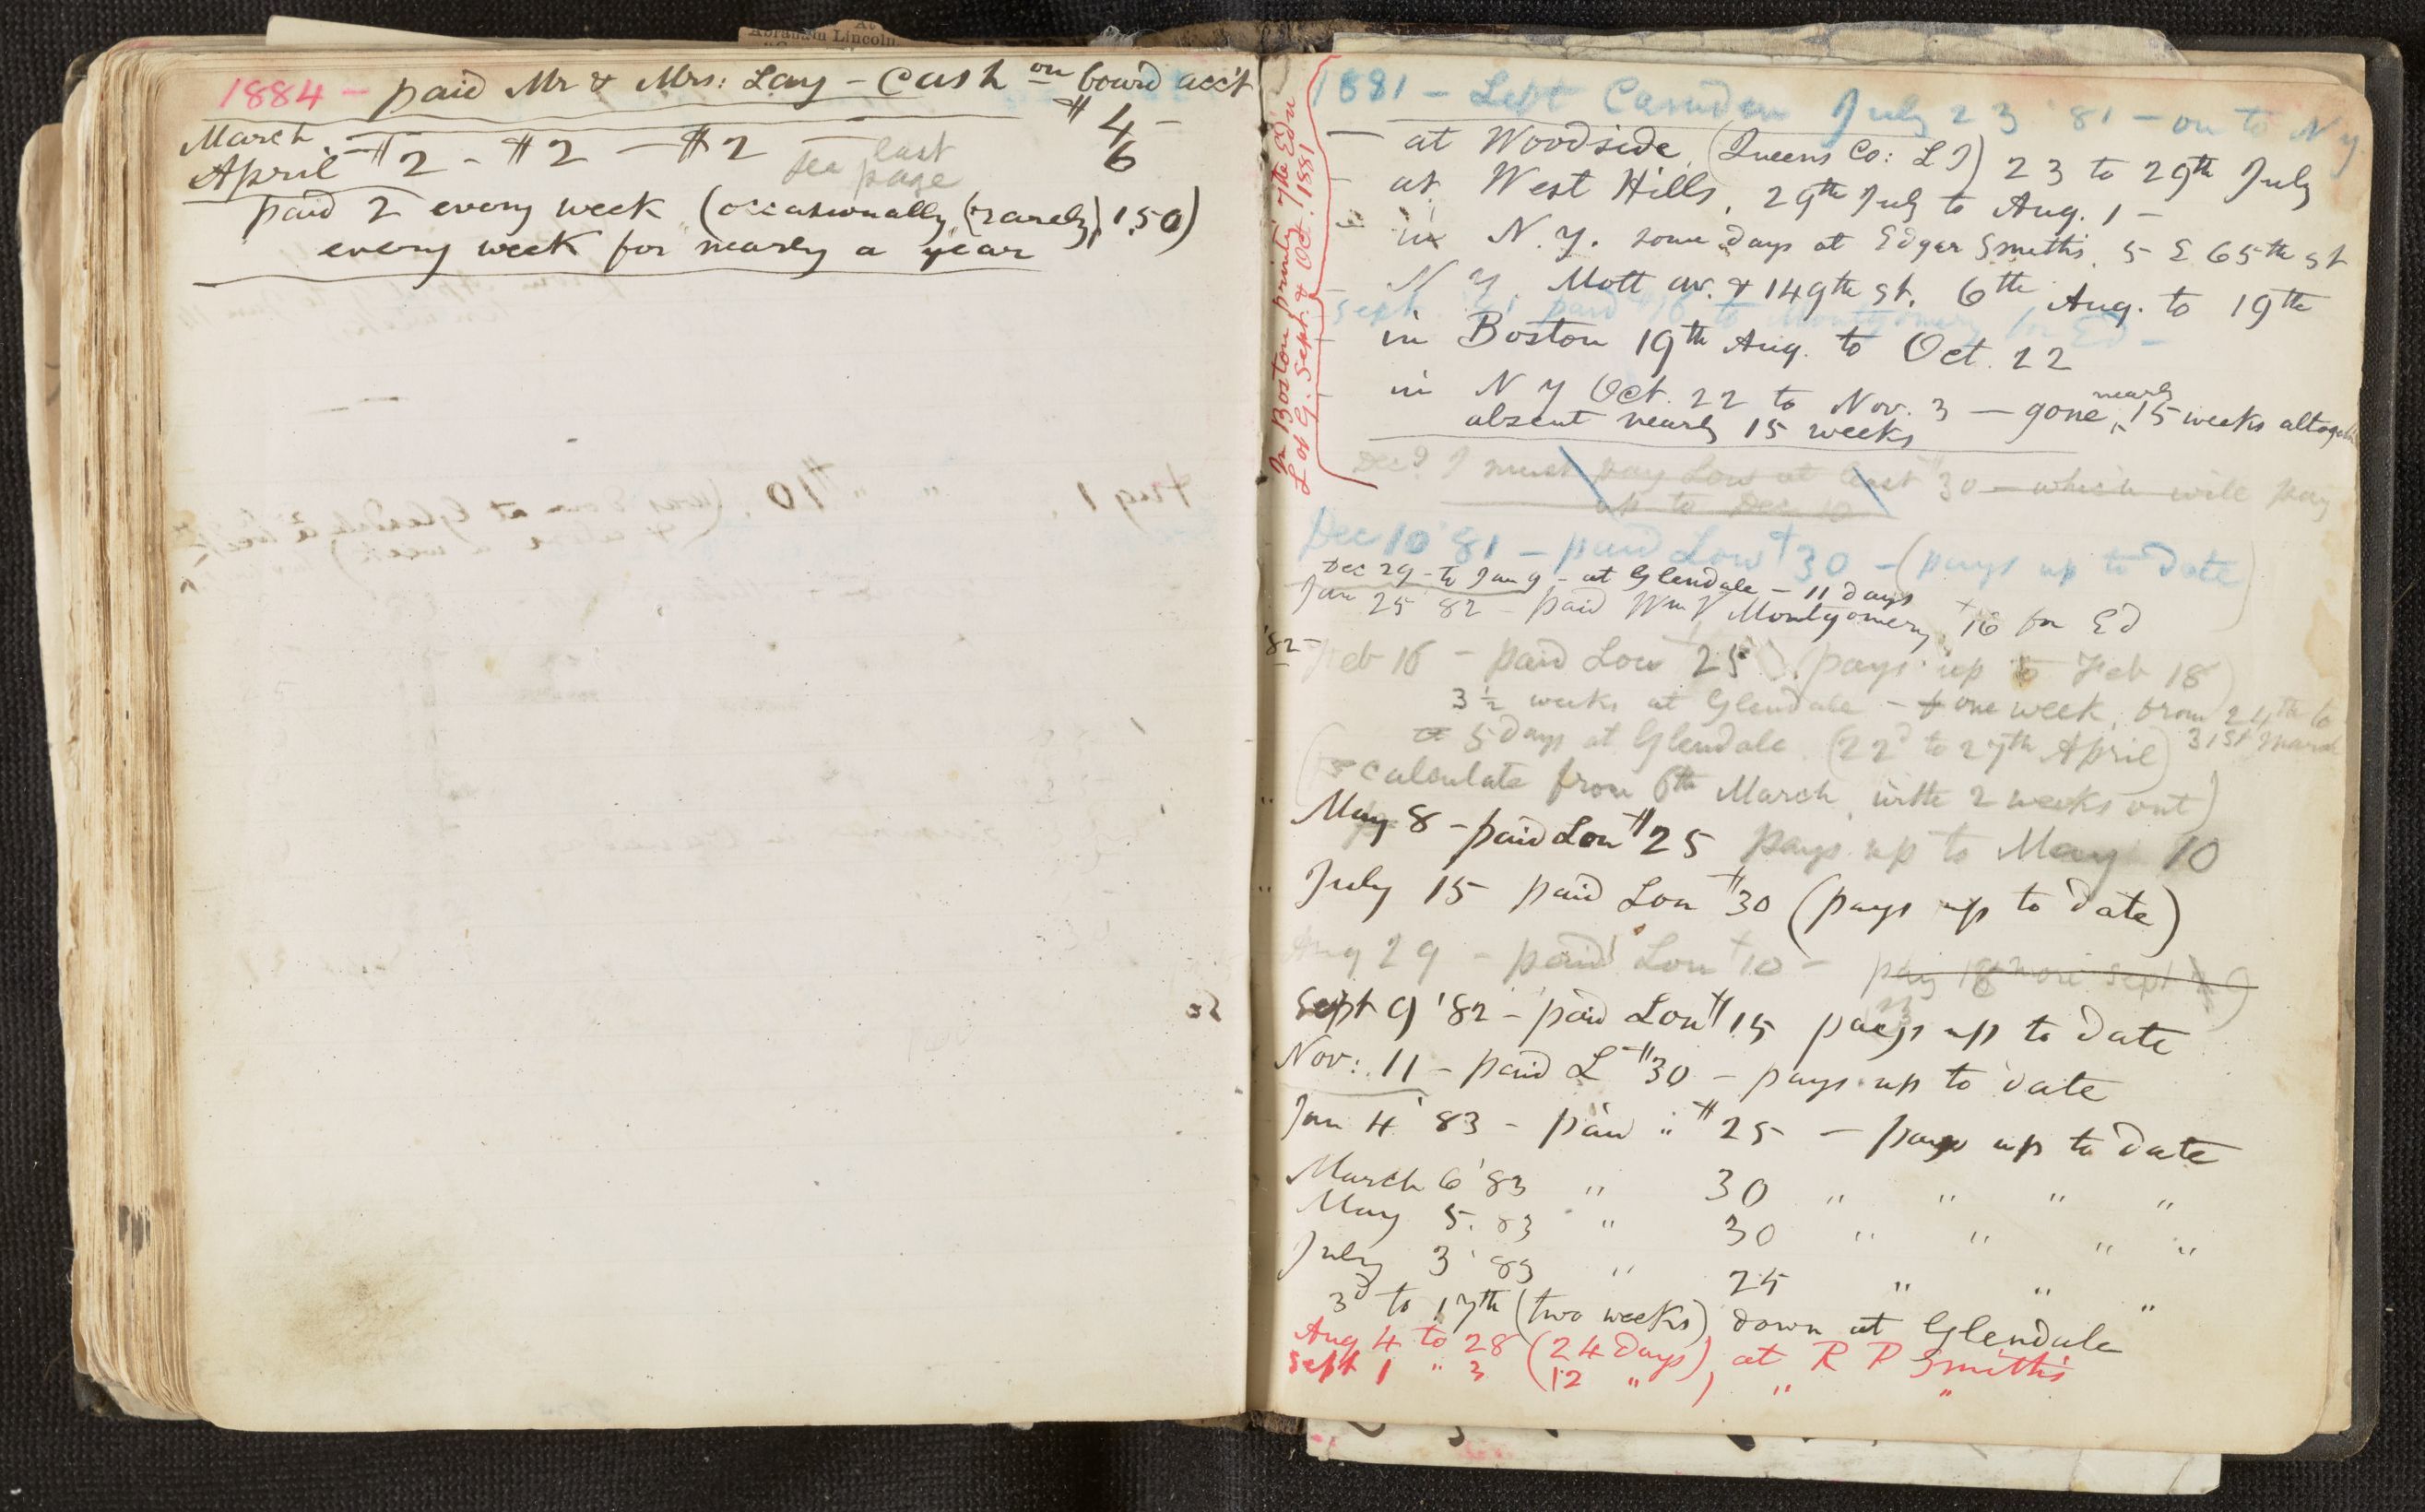 Abraham Lincoln
1884 - paid Mr & Mrs: Lay - Cash on board acc't
March $4-
April - $2 - $2 - $2 6
see last page
paid 2 every week (occasionally, (rarely), 1.50)
every week for nearly a year
1881 - Left Camden July 23 '81 - on to N Y
- at Woodside, (Queens Co: L I) 23 to 29th July
at West Hills, 29th July to Aug. 1 -
in N. Y. some days at Edgar Smith's, 5 E 65th st
N Y. Mott av. & 149th st. 6th Aug. to 19th
Sept '81 paid $16 to Montgomery for Ed -
in Boston 19th Aug. to Oct. 22
in N Y Oct. 22 to Nov. 3 - gone nearly 15 weeks altogether
absent nearly 15 weeks
In Boston printing 7the Ed'n
L of G. Sept. & Oct. 1881
Dec 9 I must pay Lou at least $30 - which will pay
up to Dec 10
Dec 10 '81 - paid Lou $30 - (pays up to date)
Dec 29 - to Jan 9 - at Glendale - 11 days
Jan 25 '82 - paid Wm V Montgomery, $16 for Ed
'82 - Feb 16 - paid Lou $25 (pays up to Feb 18)
3½ weeks at Glendale - & one week, from 24th to
31st March
5 days at Glendale (22d to 27th April)
calculate from 6th March, with 2 weeks out)
" May 8 - paid Lou $25 pays up to May 10
" July 15 paid Lou $30 (pays up to date)
Aug 29 - paid Lou $10 - pay 18 more Sept
Sept 9 '82 - paid Lou $15 pays up to date
Nov: 11 - paid L $30 - pays up to date
Jan 4 '83 - paid " $25 - pays up to date
March 6 '83 " 30 " " " "
May 5. 83 " 30 " " " "
July 3 '83 " 25 " " "
3d to 17th (two weeks) down at Glendale
Aug 4 to 28 (24 days), at R P Smith's
Sept 1 " 3 (12 " ) " "